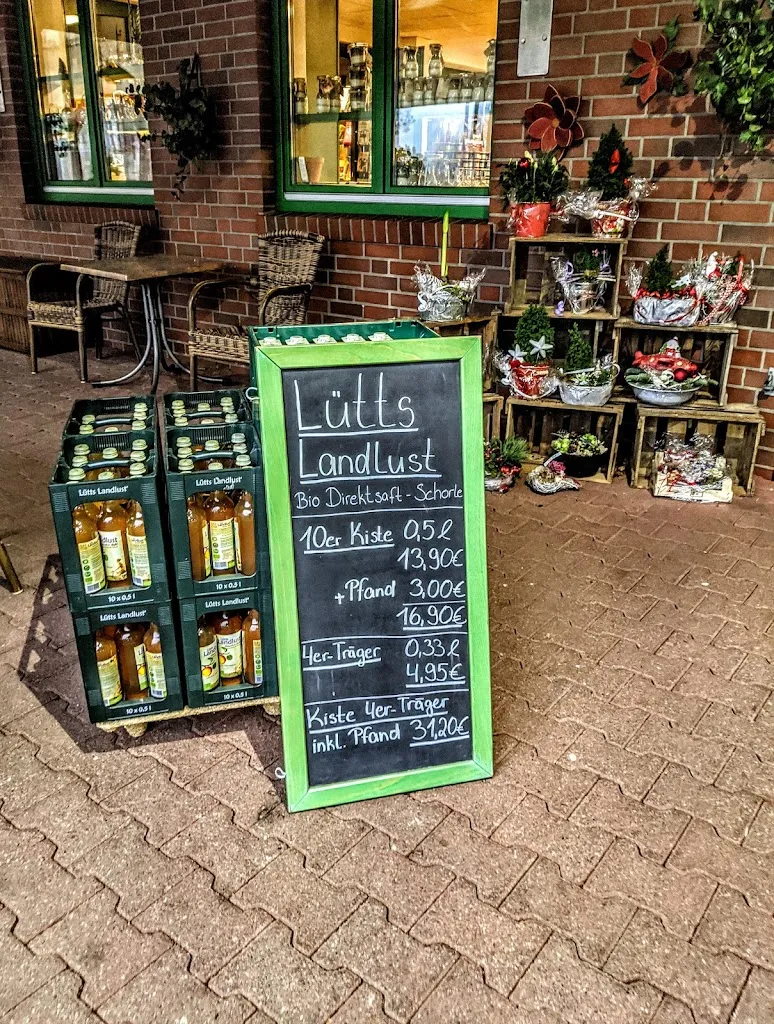 Lütts
Landlust
Bio Direktsaft - Schorle
10er Kiste 0,5ℓ
13,90€
+Pfand 3,00€
16,90€
4er-Träger 0,33ℓ
4,95€
Kiste 4er-Träger
inkl. Pfand 31,20€
Lütts Landlust
10 x 0,5 l
Lütts Landlust
10 x 0,5 l
Lütts Landlust
10 x 0,5 l
Lütts Landlust
10 x 0,5 l